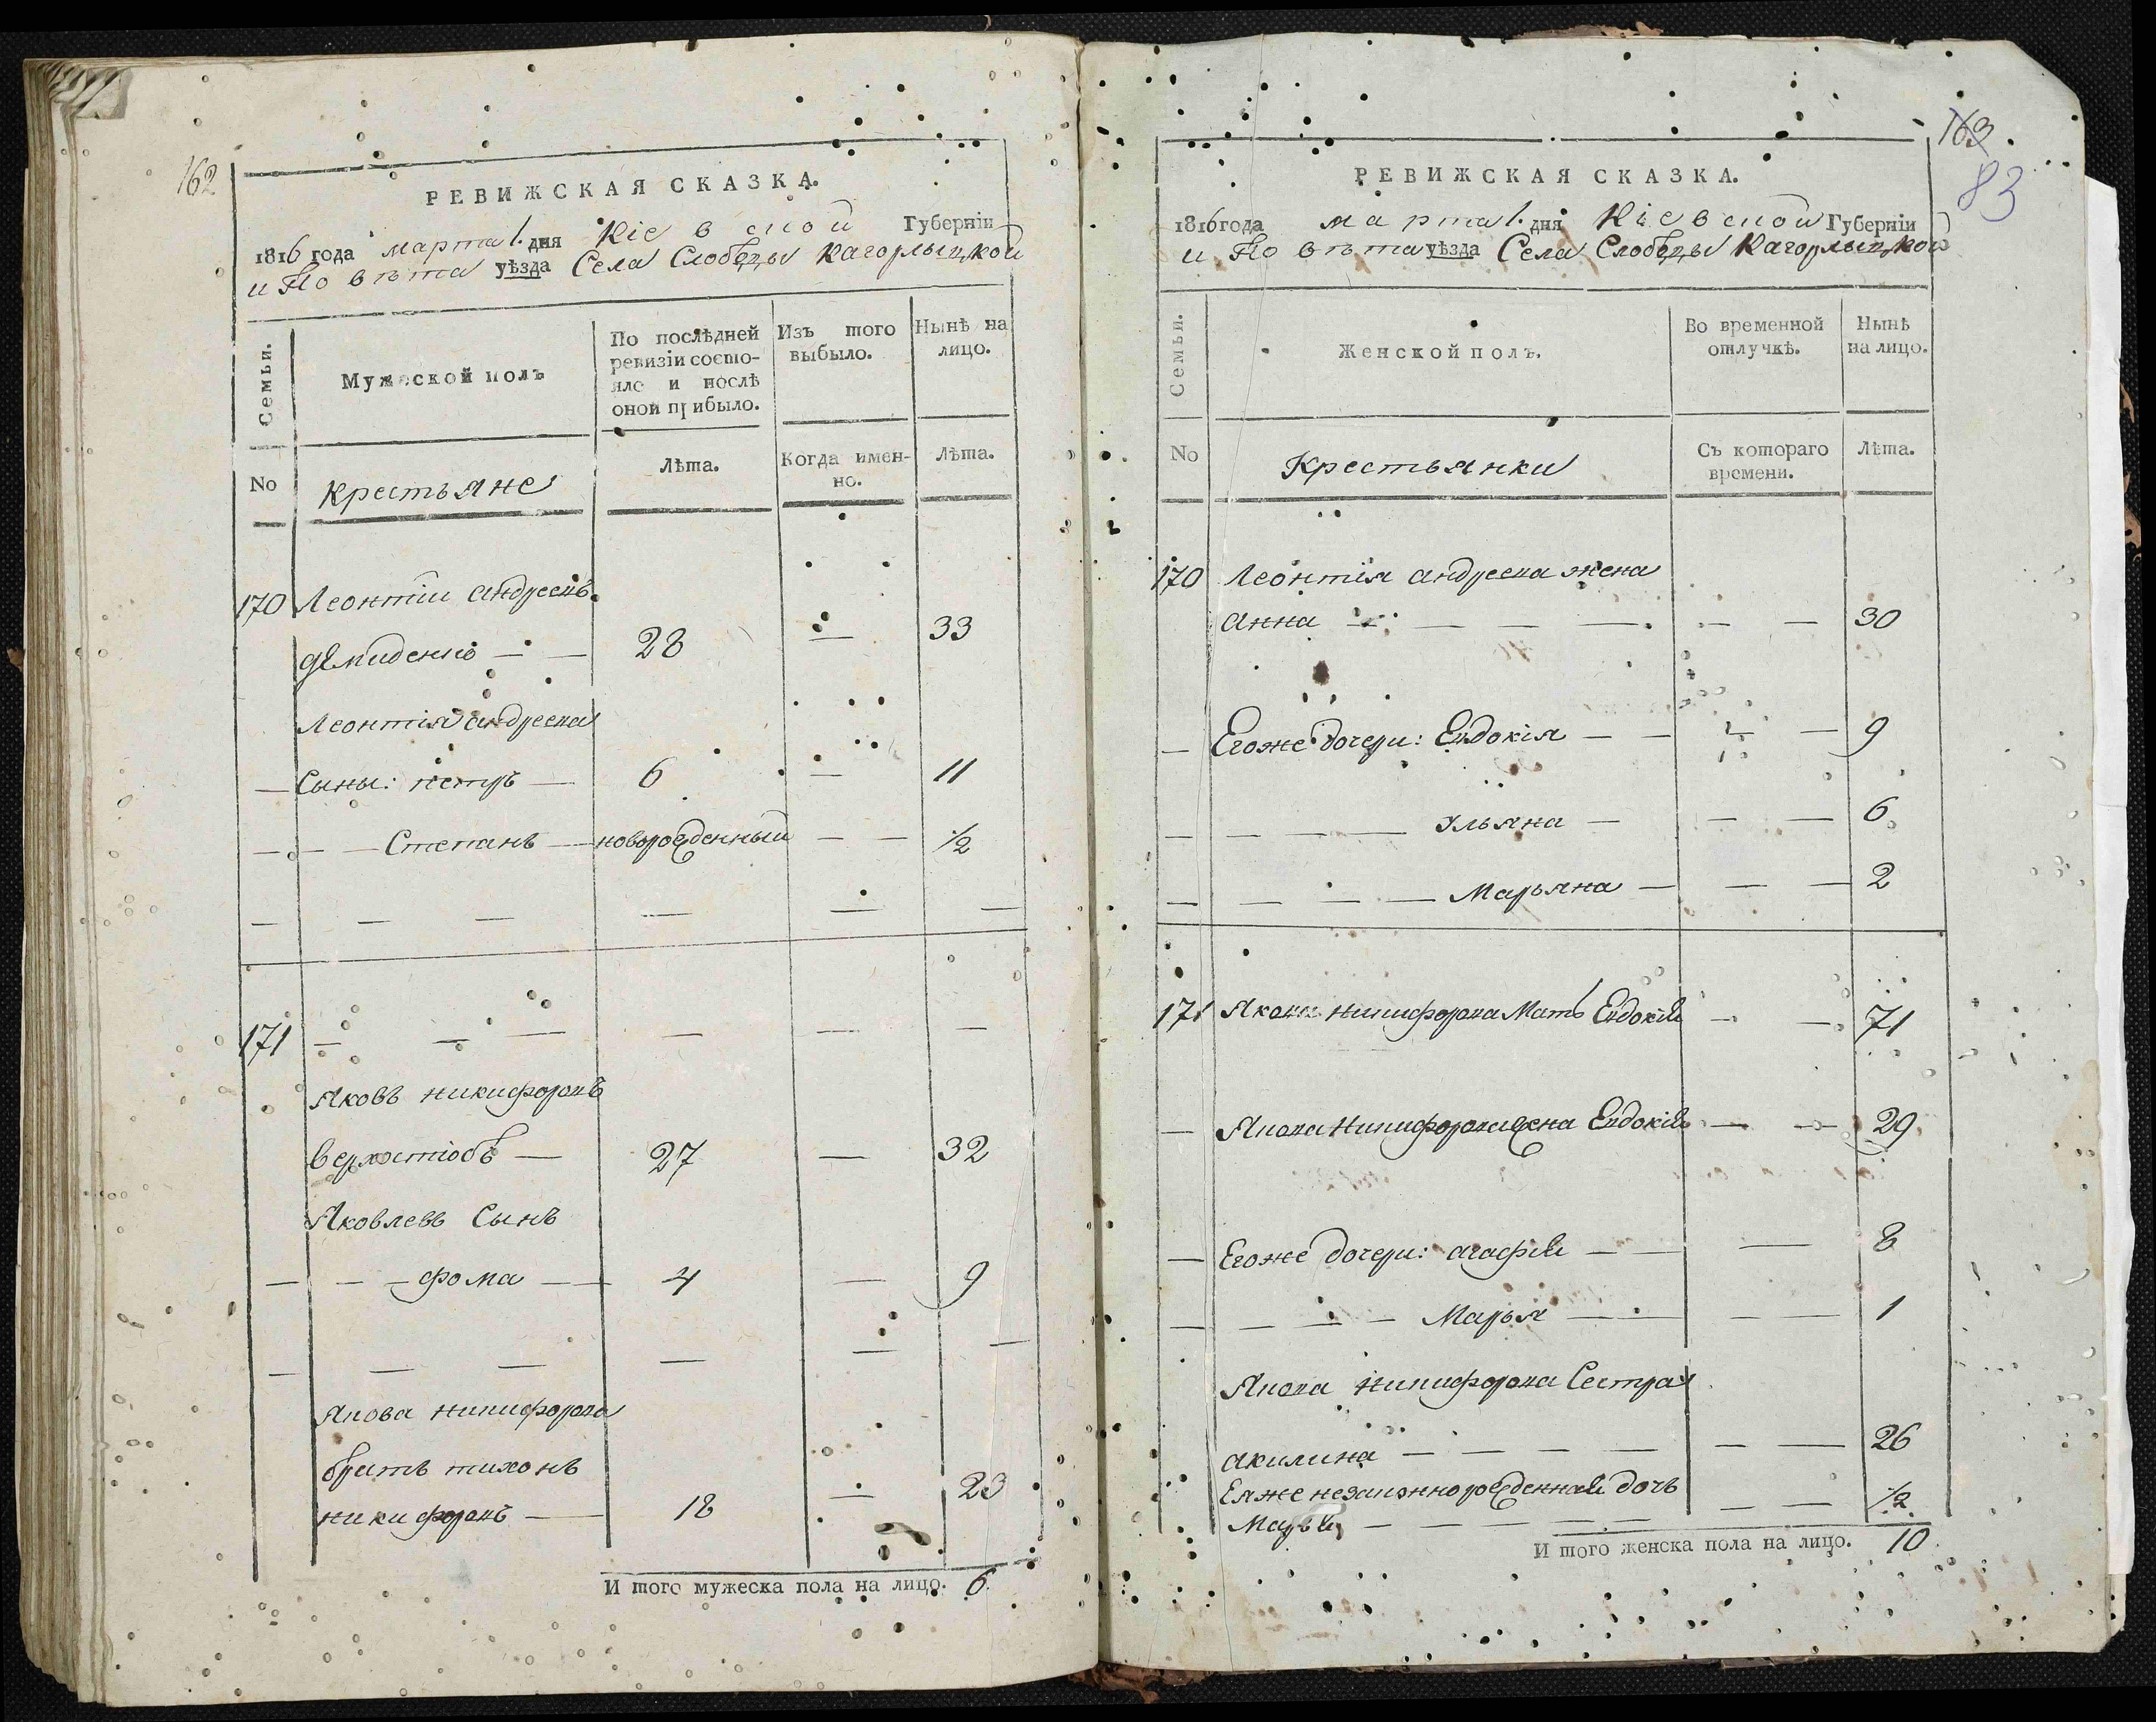 162
РЕВИЖСКАЯ СКАЗКА.
1816 года марта 1. дня Кіевской Губерніи
и Повѣта уѣзда Села Слободы Кагорлыцкой
Семьи.
Мужеской полъ
По послѣдней ревизіи состояло и послѣ оной прибыло.
Изъ того выбыло.
Нынѣ на лицо.
No
крестьяне
Лѣта.
Когда именно.
Лѣта.
170 Леонтіи андреевъ
демиденко — — 28 — 33
Леонтія андреева
— Сыны: петръ — 6 — 11
— — — Степанъ — новорожденный — — 1/2
— — — — — —
171 — — — — — —
Яковъ никифоровъ
— 27 — 32
Яковлевъ Сынъ
— — — фома — — 4 — 9
— — — — — —
Якова никифорова
братъ тихонъ
никифоровъ — 18 — 23
И того мужеска пола на лицо. 6.
163
83
РЕВИЖСКАЯ СКАЗКА.
1816 года марта 1. дня Кіевской Губерніи
и Повѣта уѣзда Села Слободы Кагорлыцкой
Семьи.
Женской полъ.
Во временной отлучкѣ.
Нынѣ на лицо.
No
Крестьянки
Съ котораго времени.
Лѣта.
170 Леонтія андреева жена
анна — — — — — — 30
— Егоже дочери: Евдокія — — — — 9
— — — — Ульяна — — — 6
— — — — Марьяна — — — 2
171 Якова никифорова Мать Евдокія — — 71
— Якова никифорова жена Евдокія — — 29
— Егоже дочери: агафія — — — 8
— — — — Марья — — — — 1
Якова никифорова Сестра
акилина — — — — — — 26
Еяже незаконнорожденная дочь
Марья — — — — — — 1/2
И того женска пола на лицо. 10